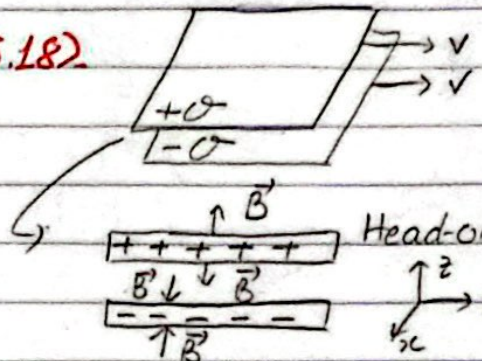 5.18).
→ V
→ V
+σ
-σ
↑ B⃗
+ + + + + Head-o
B⃗ ↓ ↓ B⃗
- - - - -
↑ B⃗
z
x